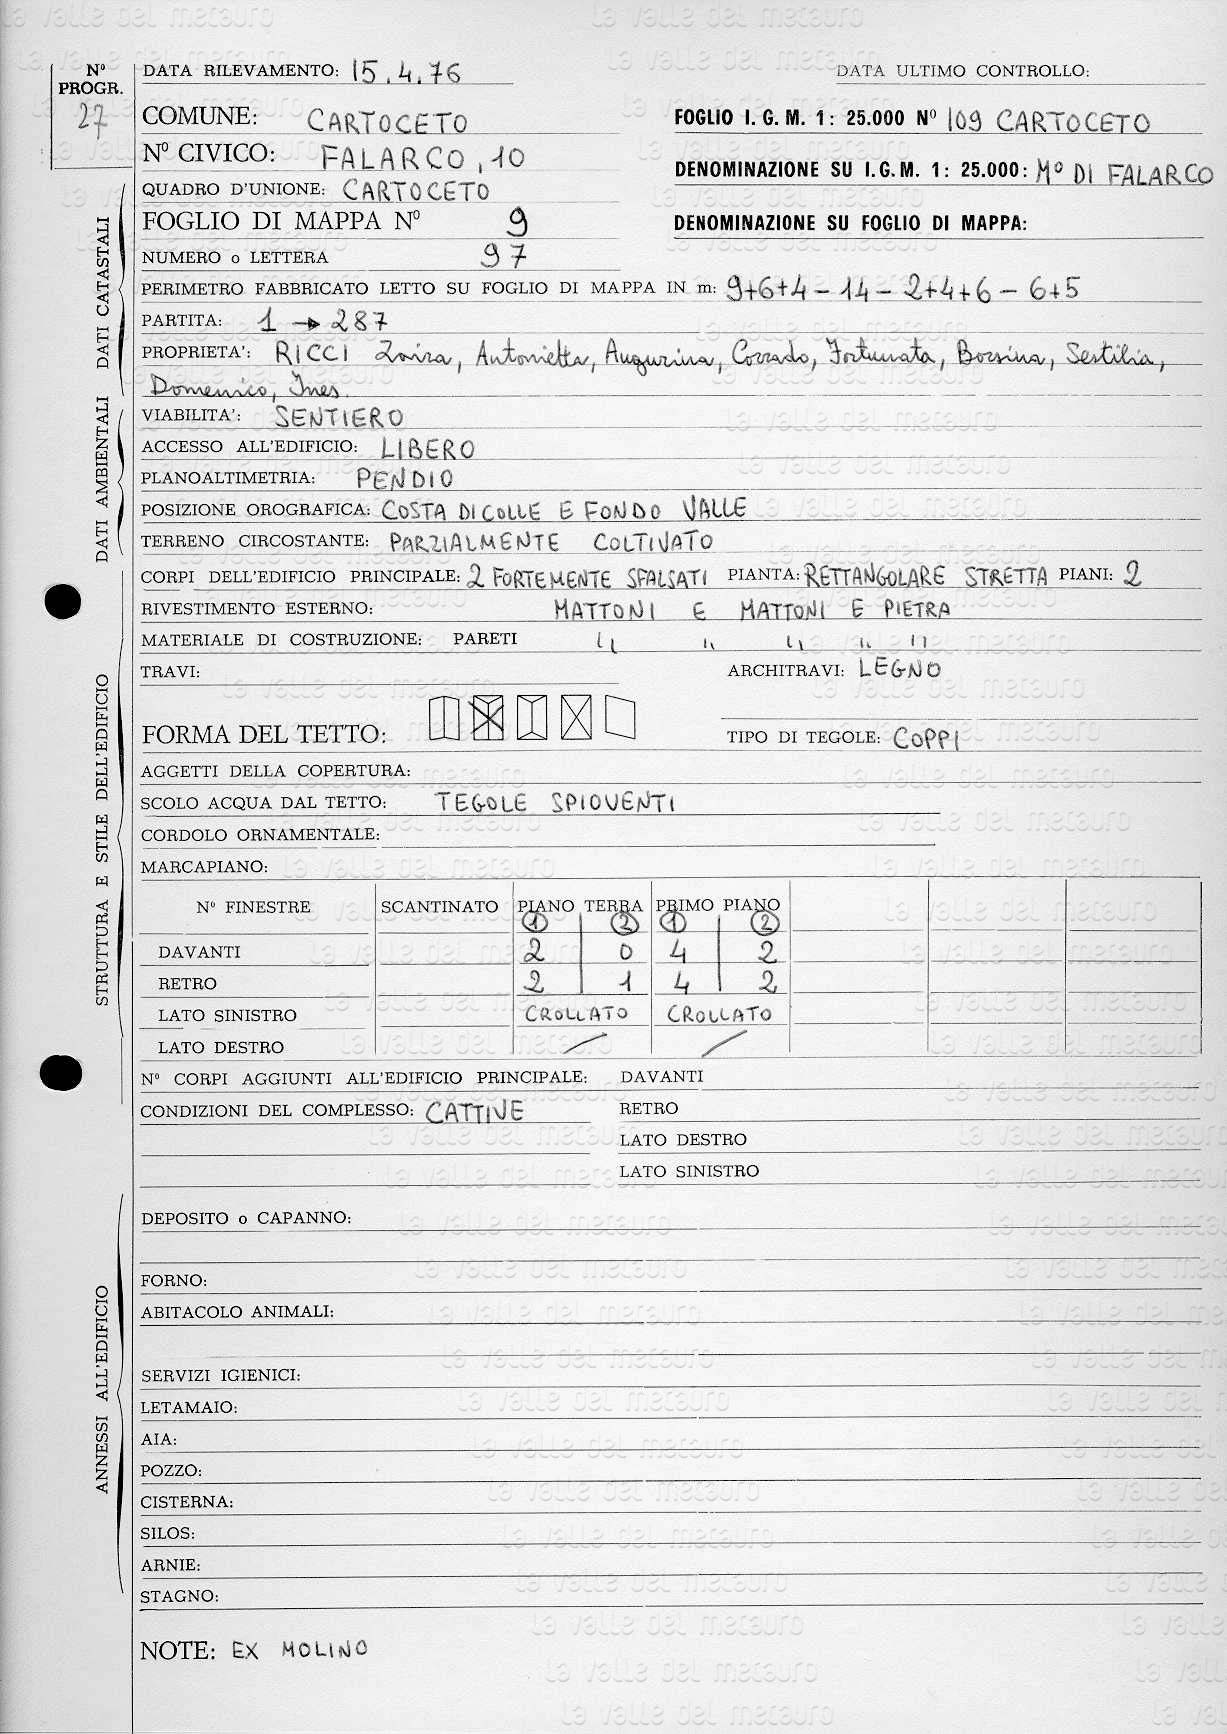 Nº PROGR. 27
DATA RILEVAMENTO: 15.4.76 DATA ULTIMO CONTROLLO:
COMUNE: CARTOCETO FOGLIO I.G.M. 1: 25.000 Nº 109 CARTOCETO
Nº CIVICO: FALARCO, 10 DENOMINAZIONE SU I.G.M. 1: 25.000: Mº DI FALARCO
QUADRO D'UNIONE: CARTOCETO
FOGLIO DI MAPPA Nº 9 DENOMINAZIONE SU FOGLIO DI MAPPA:
NUMERO o LETTERA 97
PERIMETRO FABBRICATO LETTO SU FOGLIO DI MAPPA IN m: 9+6+4-14-2+4+6-6+5
PARTITA: 1 → 287
PROPRIETA': RICCI Zoira, Antonietta, Augurina, Corrado, Fortunata, Borsina, Sestilia,
Domenico, Ines.
VIABILITA': SENTIERO
ACCESSO ALL'EDIFICIO: LIBERO
PLANOALTIMETRIA: PENDIO
POSIZIONE OROGRAFICA: COSTA DI COLLE E FONDO VALLE
TERRENO CIRCOSTANTE: PARZIALMENTE COLTIVATO
CORPI DELL'EDIFICIO PRINCIPALE: 2 FORTEMENTE SFALSATI PIANTA: RETTANGOLARE STRETTA PIANI: 2
RIVESTIMENTO ESTERNO: MATTONI E MATTONI E PIETRA
MATERIALE DI COSTRUZIONE: PARETI " " " " "
TRAVI: ARCHITRAVI: LEGNO
FORMA DEL TETTO: TIPO DI TEGOLE: COPPI
AGGETTI DELLA COPERTURA:
SCOLO ACQUA DAL TETTO: TEGOLE SPIOVENTI
CORDOLO ORNAMENTALE:
MARCAPIANO:
Nº FINESTRE SCANTINATO PIANO TERRA PRIMO PIANO
1 2 1 2
DAVANTI 2 0 4 2
RETRO 2 1 4 2
LATO SINISTRO CROLLATO CROLLATO
LATO DESTRO / /
Nº CORPI AGGIUNTI ALL'EDIFICIO PRINCIPALE: DAVANTI
CONDIZIONI DEL COMPLESSO: CATTIVE RETRO
LATO DESTRO
LATO SINISTRO
DEPOSITO o CAPANNO:
FORNO:
ABITACOLO ANIMALI:
SERVIZI IGIENICI:
LETAMAIO:
AIA:
POZZO:
CISTERNA:
SILOS:
ARNIE:
STAGNO:
NOTE: EX MOLINO
DATI CATASTALI
DATI AMBIENTALI
STRUTTURA E STILE DELL'EDIFICIO
ANNESSI ALL'EDIFICIO
la valle del metauro